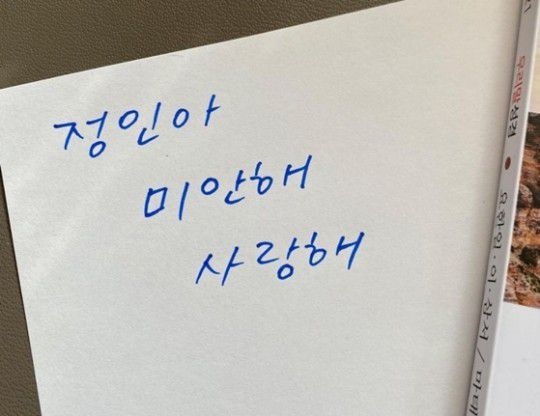 정인아
미안해
사랑해